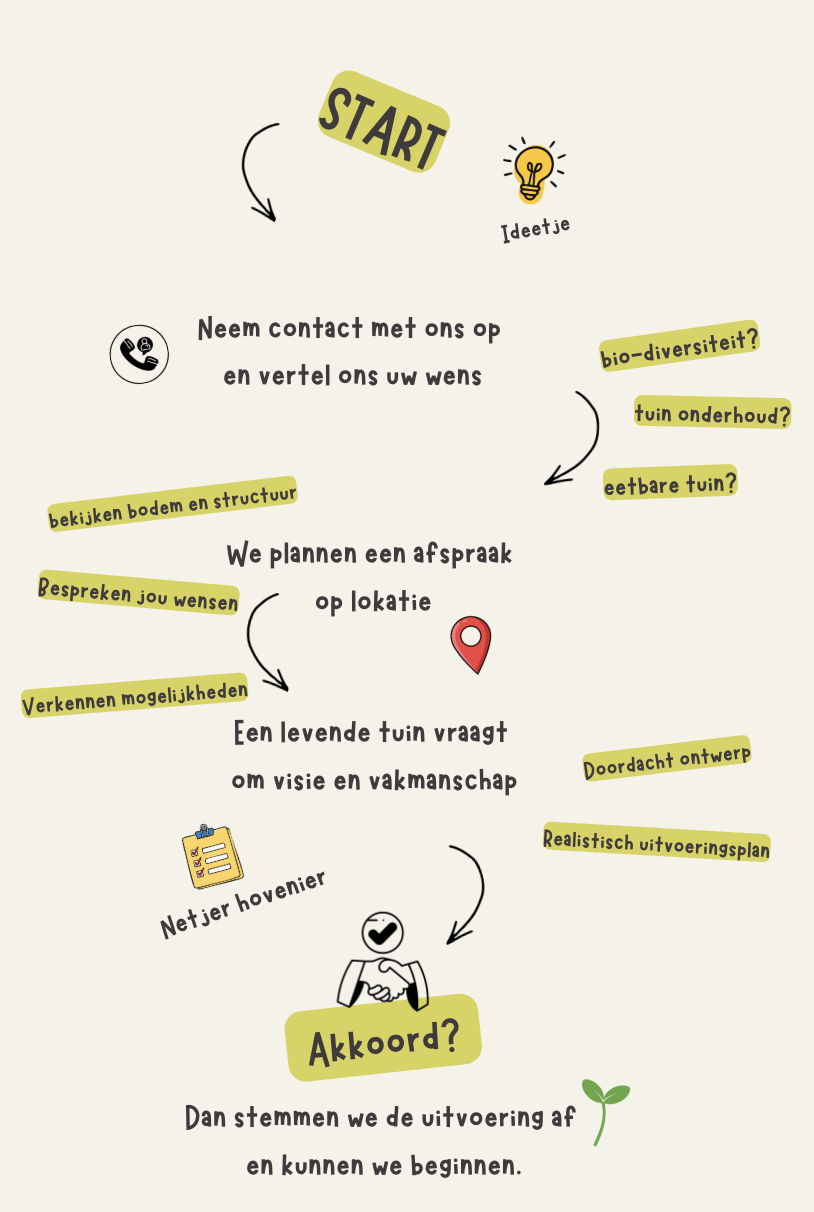 START
Ideetje
Neem contact met ons op
en vertel ons uw wens
bio-diversiteit?
tuin onderhoud?
eetbare tuin?
bekijken bodem en structuur
Bespreken jou wensen
Verkennen mogelijkheden
We plannen een afspraak
op lokatie
Een levende tuin vraagt
om visie en vakmanschap
Doordacht ontwerp
Realistisch uitvoeringsplan
Netjer hovenier
Akkoord?
Dan stemmen we de uitvoering af
en kunnen we beginnen.